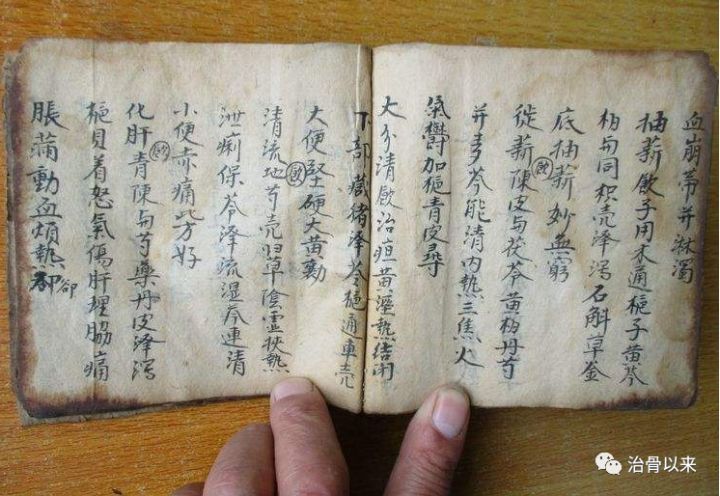 血崩帶并淋濁
抽薪飲子用木通梔子黃芩
柏与同枳壳泽瀉石斛草釜
底抽薪妙無窮
徙薪飲陳皮与茯苓黃柏丹芍
并麦芩能清内熱三焦火
氣鬱加梔青皮尋
大分清飲治疸黃溼熱结闭
下部藏猪泽苓梔通車壳
大便堅硬大黃勷
清流飲地芍壳归草陰虚挾熱
泄痢保苓泽流湿芩連清
小便赤痛此方好
化肝煎青陳与芍藥丹皮泽瀉
梔貝着怒氣傷肝理脇痛
脹滿動血煩熱却
卻
治骨以来